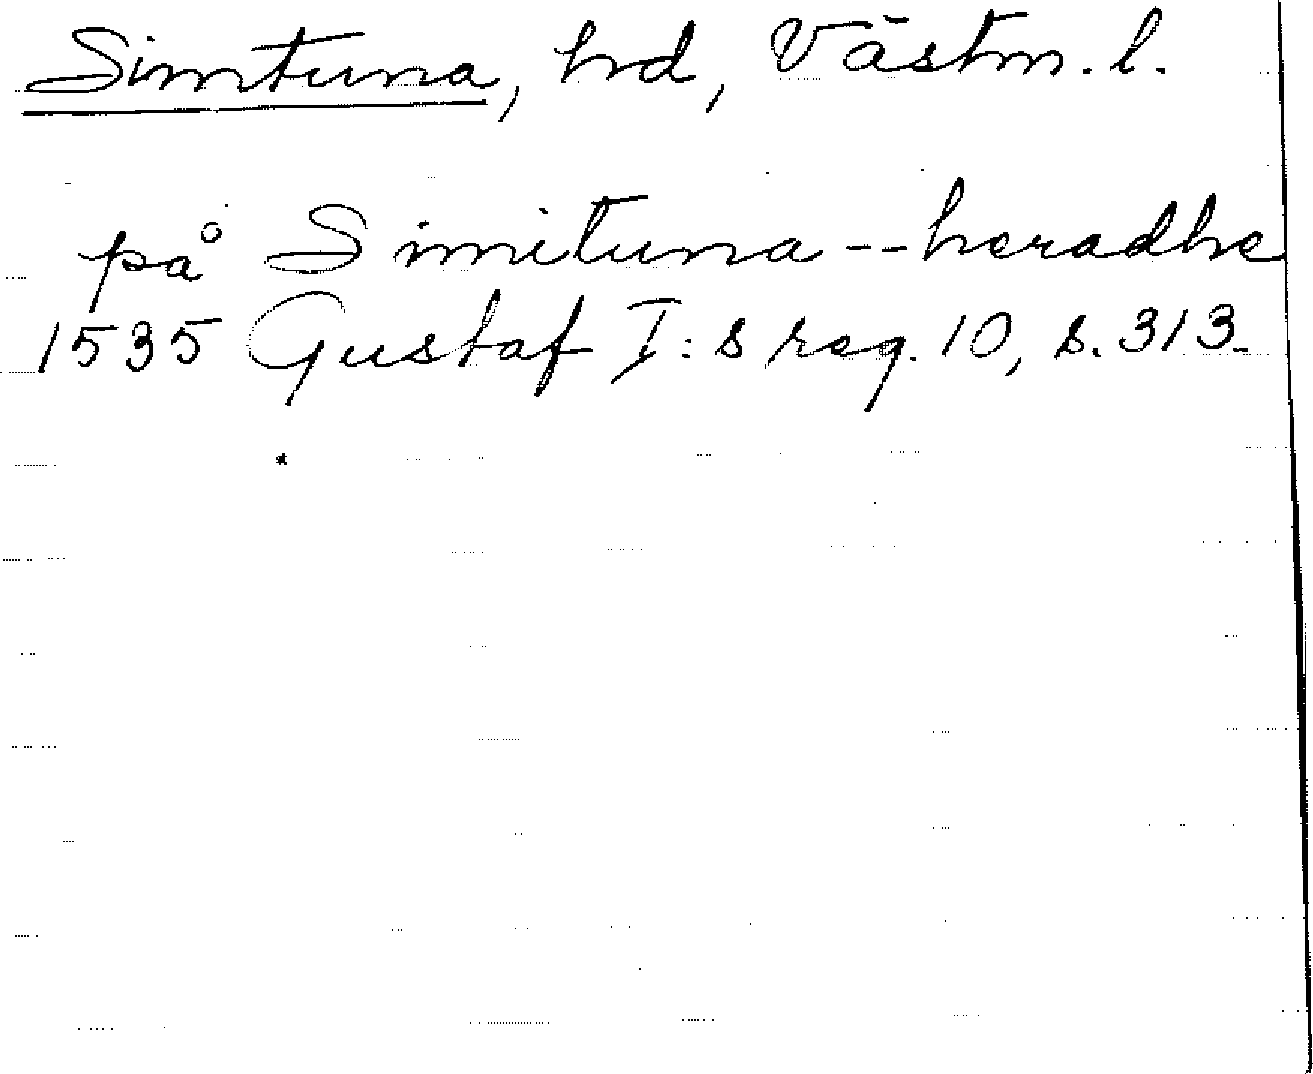 Simtuna, hd, Västm. l.
på Simituna -- heradhe
1535 Gustaf I: s reg. 10, s. 313.